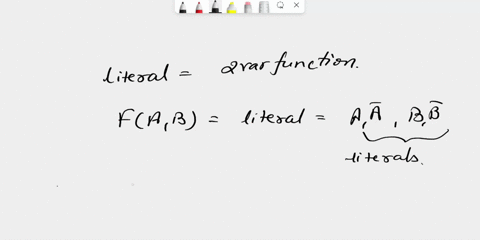 literal = 2 var function.
F(A,B) = literal = A, Ā, B, B̄
literals.